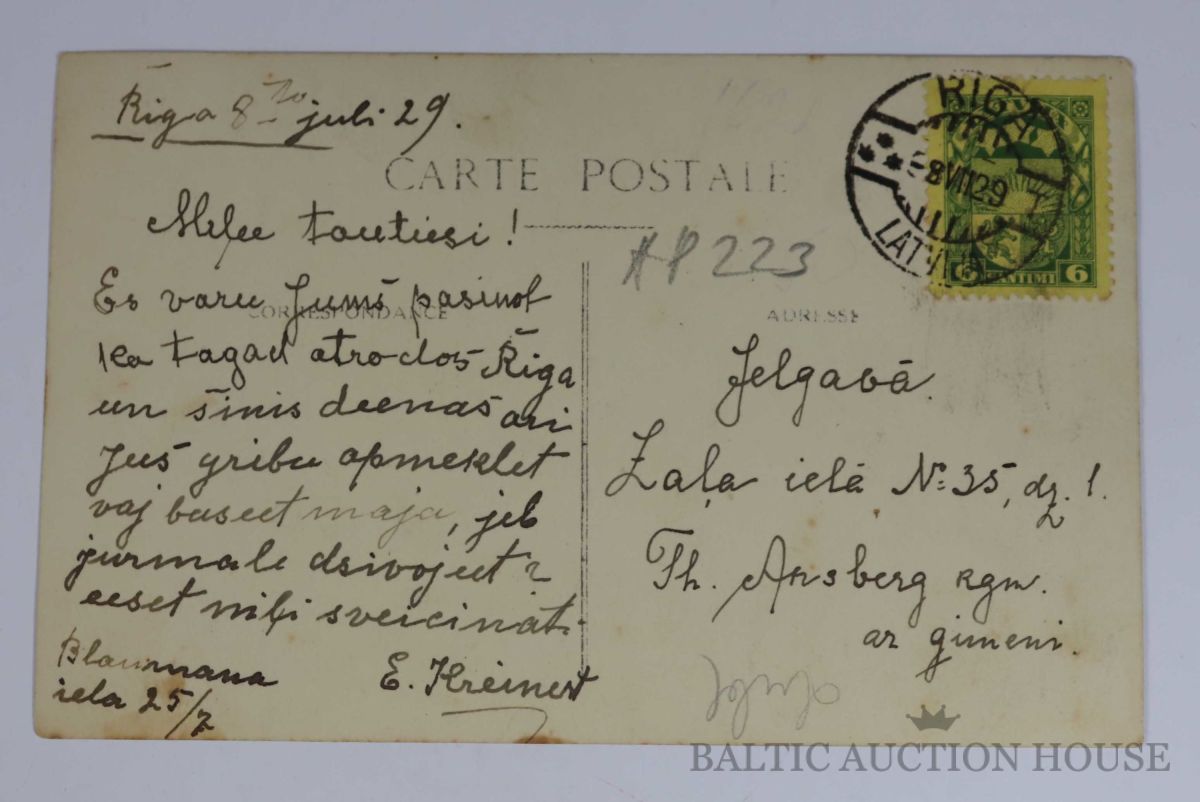 Riga 8to juli 29.
CARTE POSTALE
RIGA
-8 VII 29
6
AP 223
CORRESPONDANCE
ADRESSE
tautiesi!
Es varu Jums̄ pasinot
ka tagad atrodos Riga
un šinis deenas ari
Jus gribu apmeklet
vaj buseet maja, jeb
jurmale dsivojeet?
eeset miļi sveicinati
E. Kreinert
Blaumana
iela 25/7
Jelgavā.
Zaļa ielā № 35, dz. 1.
Th. Ansberg kgm.
ar gimeni.
BALTIC AUCTION HOUSE